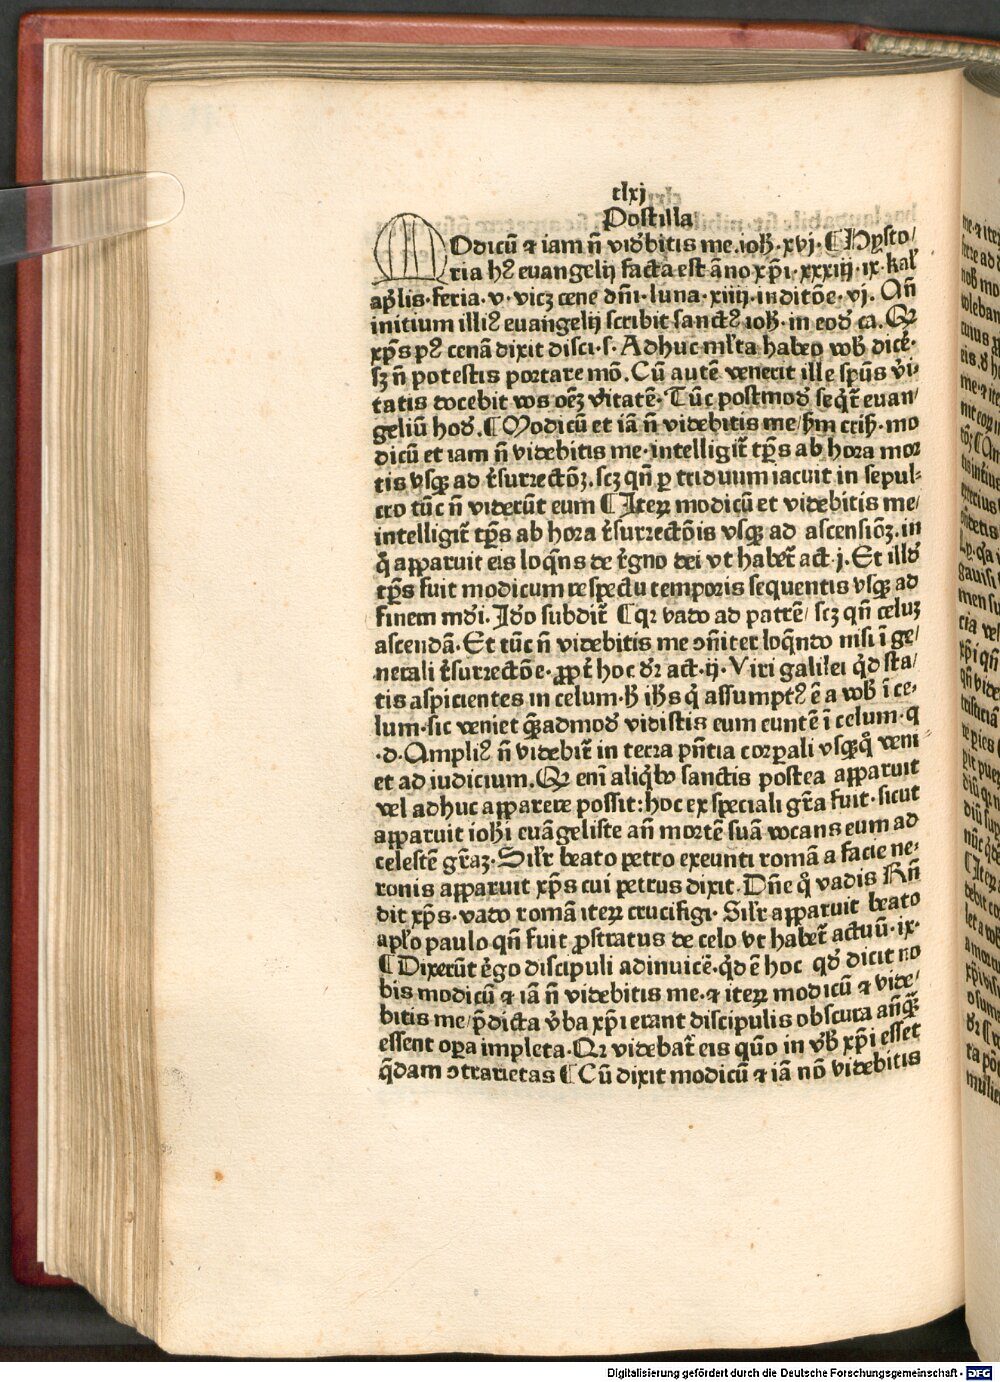 clxj
Postilla
MOdicū ⁊ iam n̄ vid̛bitis me.ioh̄.xvj. ¶ Hysto/
ria hꝰ euangelij facta est āno xp̄i.xxxiiij.ix.kal̛
ap̄lis.feria.v.vicꝫ cene dn̄i.luna.xiiij.inditōe.vj. An̄
initium illiꝰ euangelij scribit sanctꝰ ioh̄.in eod̛ ca. Qꝛ
xp̄s pꝰ cenā dixit disci.s. Adhuc ml̛ta habeo vob̄ dicē.
sꝫ n̄ potestis portare mō. Cū autē venerit ille sp̄us v̛i
tatis docebit vos oēꝫ v̛itatē. Tūc postmod̛ seqr̄ euan/
geliū hod̛. ¶ Modicū et iā n̄ videbitis me/ s̄m crisꝫ. mo
dicū et iam n̄ videbitis me.intelligit̄ tp̄s ab hora mor
tis vsqꝫ ad r̄surrectōꝫ.scꝫ qn̄ ꝑ triduum iacuit in sepul-
cro tūc n̄ viderūt eum ¶ Iteꝝ modicū et videbitis me/
intelligit̄ tp̄s ab hora r̄surrectōis vsqꝫ ad ascensiōꝫ.in
q̄ apparuit eis loqn̄s de r̄gno dei vt habet̄ act.j. Et illd̛
tp̄s fuit modicum respectu temporis sequentis vsqꝫ ad
finem mdi. Id̛o subdit̄ ¶ qꝛ vado ad patrē/ scꝫ qn̄ celuꝫ
ascendā. Et tūc n̄ videbitis me ꝯn̄iter loqn̄do nisi ī ge/
nerali r̄surrectōe. ꝓpt̄ hoc dꝛ act.ij. Viri galilei qd̄ sta/
tis aspicientes in celum.h̄ ih̄s q̄ assumptꝰ ē a vob̄ ī ce-
lum.sic veniet qꝫadmod̛ vidistis eum euntē ī celum.q
.d. Ampliꝰ n̄ videbit̄ in terra pn̄tia corꝑali vsqꝫq̄ veni
et ad iudicium. Qꝛ eni aliqb̄ sanctis postea apparuit
vel adhuc apparere possit: hoc ex speciali gr̄a fuit. sicut
apparuit ioh̄i euāgeliste an̄ mortē suā vocans eum ad
celestē gr̄aꝫ. Sil̛r beato petro exeunti romā a facie ne-
ronis apparuit xp̄s cui petrus dixit. Dn̄e q̄ vadis Rn̄
dit xp̄s.vado romā iteꝝ crucifigi. Sil̛r apparuit beato
apl̛o paulo qn̄ fuit ꝓstratus de celo vt habet̄ actuū.ix.
¶ Dixerūt ēgo discipuli adinuicē.qd̄ ē hoc qd̛ dicit no
bis modicū ⁊ iā n̄ videbitis me.⁊ iteꝝ modicū ⁊ vide/
bitis me/ p̄dicta v̛ba xp̄i erant discipulis obscura an̄qꝫ
essent oꝑa impleta. Qꝛ videbat̄ eis quō in v̛b̄ xp̄i esset
q̄dam ꝯtrarietas ¶ Cū dixit modicū ⁊ iā nō videbitis
Digitalisierung gefördert durch die Deutsche Forschungsgemeinschaft - DFG